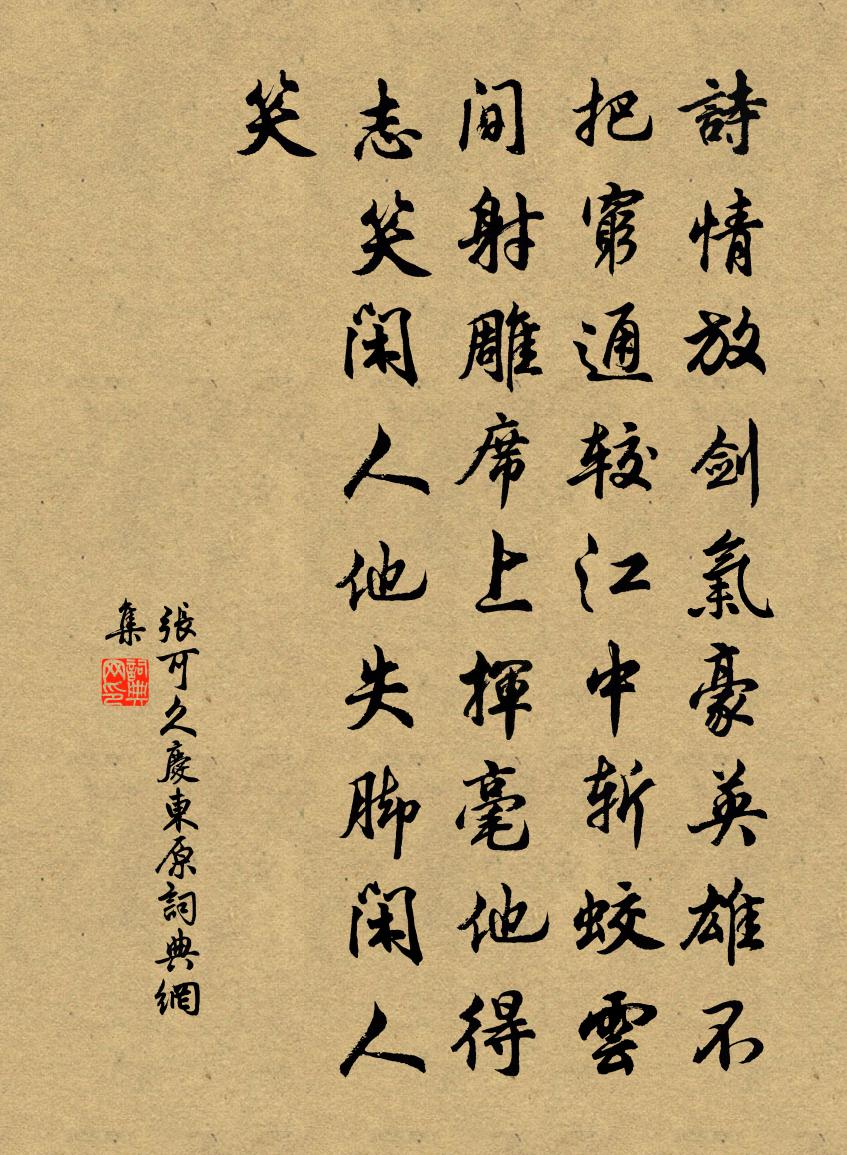 詩情放劍氣豪英雄不
把窮通較江中斬蛟雲
间射雕席上揮毫他得
志笑閑人他失脚閑人
笑
張可久慶東原詞典網
集
詞典网印